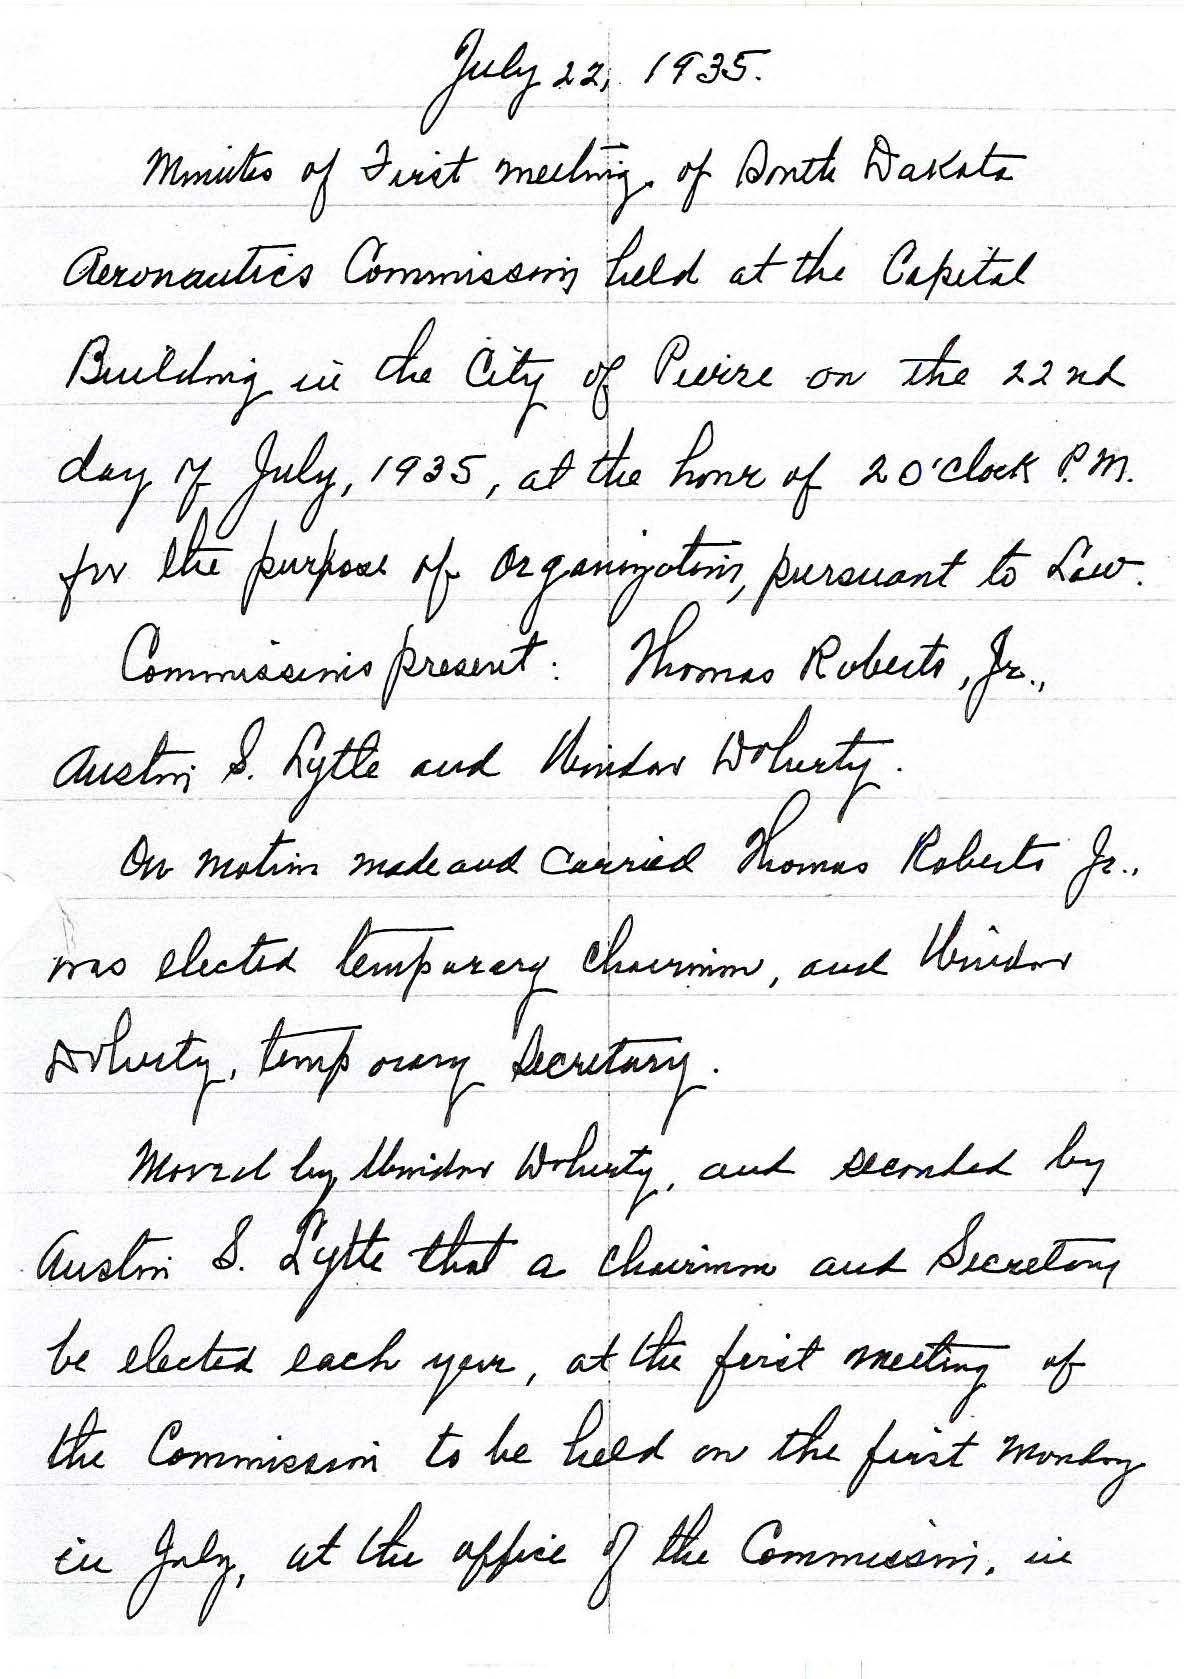 July 22, 1935.
Minutes of First meeting of South Dakota
Aeronautics Commission held at the Capital
Building in the City of Pierre on the 22nd
day of July, 1935, at the hour of 2 O'clock P.M.
for the purpose of organization, pursuant to Law.
Commissions present: Thomas Roberts, Jr.,
Austin S. Lytle and Windor Doherty.
On motion made and carried Thomas Roberts Jr.,
was elected temporary chairman, and Windor
Doherty, temporary Secretary.
Moved by Windor Doherty, and seconded by
Austin S. Lytle that a chairman and Secretary
be elected each year, at the first meeting of
the Commission to be held on the first Monday
in July, at the office of the Commission, in